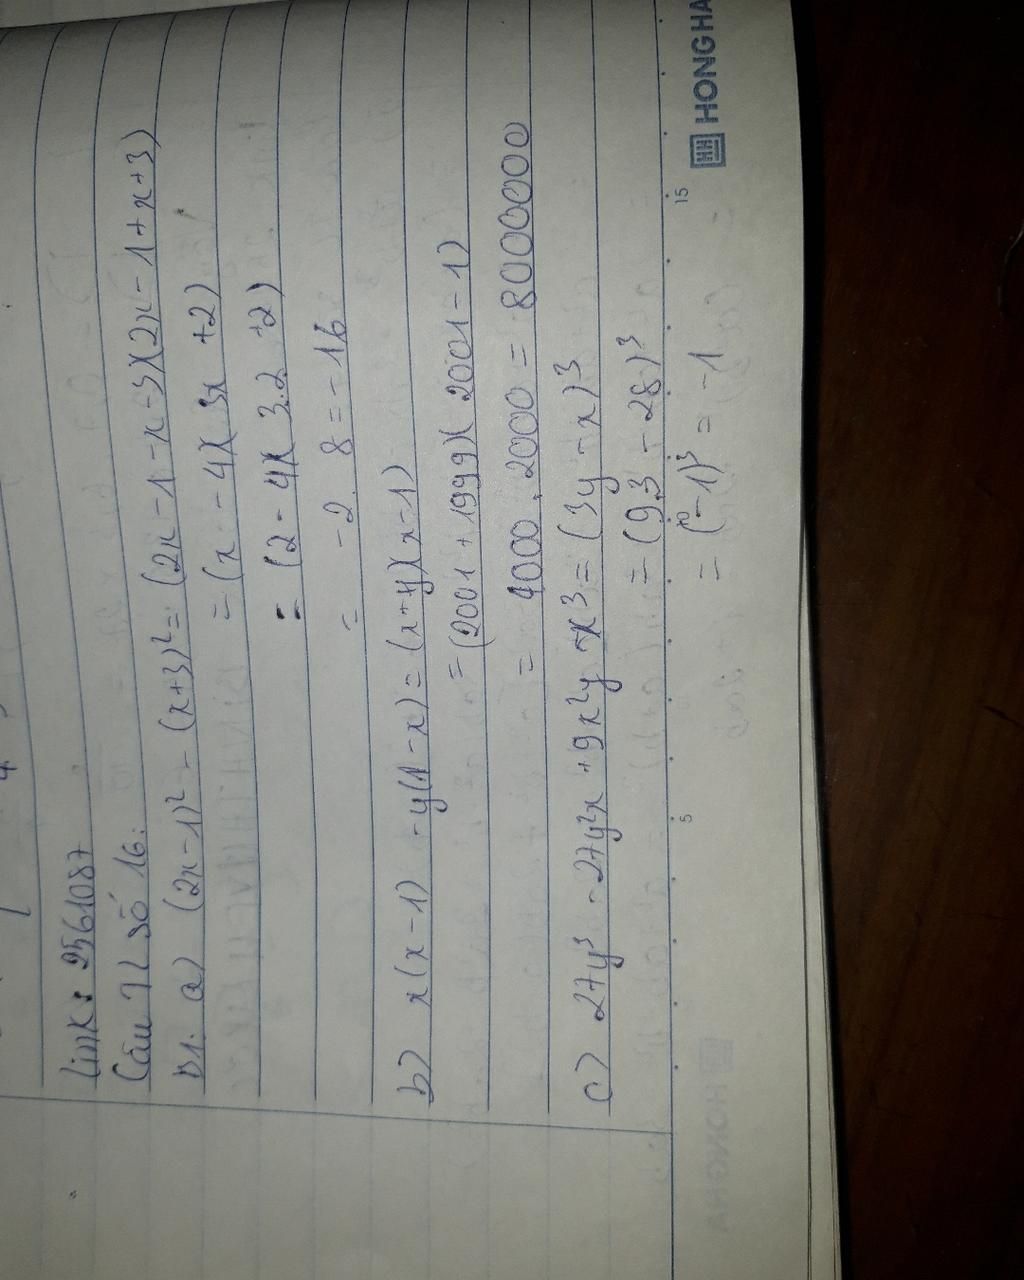 link: 2561087
Câu 71 số 16:
B1. a) (2x-1)² - (x+3)² = (2x-1-x-3)(2x-1+x+3)
= (x-4)(3x+2)
= (2-4)(3.2+2)
= -2.8=-16
b) x(x-1) -y(1-x) = (x+y)(x-1)
= (2001+1999)(2001-1)
= 4000.2000 = 8000000
c) 27y³ -27y²x +9x²y -x³ = (3y-x)³
= (9.3 - 28)³
= (-1)³ = -1
5
15
HONG HA